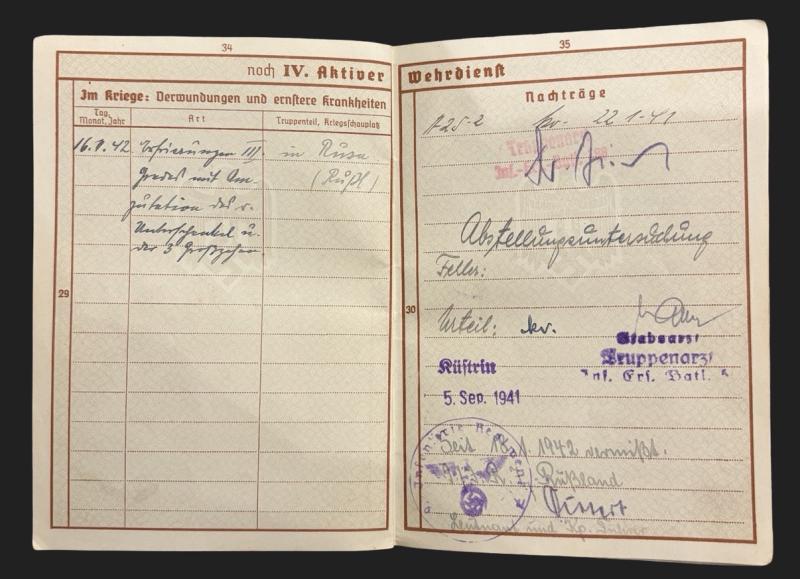 34
noch IV. Aktiver
Im Kriege: Verwundungen und ernstere Krankheiten
Tag, Monat, Jahr
Art
Truppenteil, Kriegsschauplatz
42 Erfrierungen III.
Grades mit Am-
putation des r.
Unterschenkel u.
der 3 Großzehen
in Rusa
(Rußl)
29
35
Wehrdienst
Nachträge
A 25-2 kv. 22 1-41
Truppenarzt
Abstellungsuntersuchung
Fehler:
30
Urteil: kv.
Stabsarzt
Truppenarzt
Inf. Ers. Batl.
Küstrin
5. Sep. 1941
Seit 1942 vermißt.
Rußland
Leutnant und Kp.